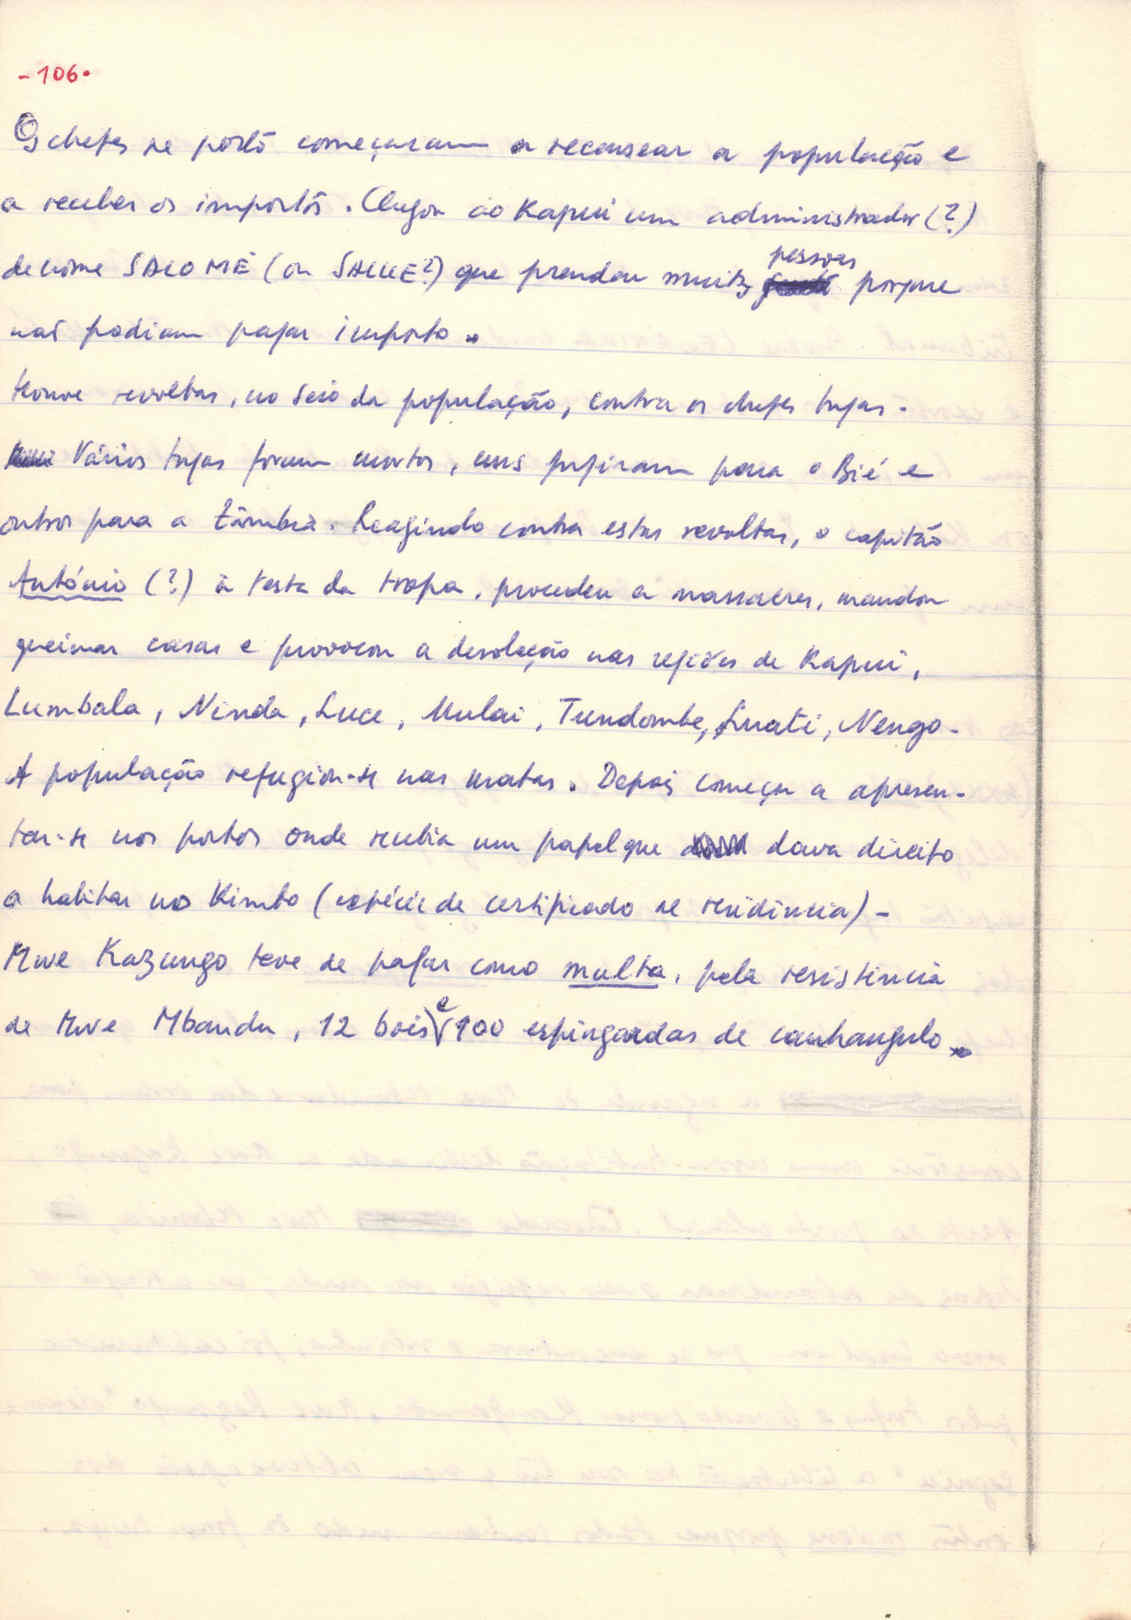 -106.
Os chefes de posto começaram a recensear a população e
a receber os impostos. Chegou ao Kapui um administrador (?)
de nome SALOMÉ (ou SALLE?) que prendeu muitas pessoas porque
não podiam pagar imposto.
Houve revoltas, no seio da população, contra os chefes tugas.
Vários tugas foram mortos, uns fugiram para o Bié e
outros para a Zâmbia. Reagindo contra estas revoltas, o capitão
António (?) à testa da tropa, procedeu a massacres, mandou
queimar casas e provocou a desolação nas regiões de Kapui,
Lumbala, Ninda, Luce, Mulai, Tundombe, Luati, Nengo.
A população refugiou-se nas matas. Depois começou a apresen-
tar-se nos postos onde recebia um papel que dava direito
a habitar no Kimbo (espécie de certificado de residência) -
Mwe Kazungo teve de pagar como multa, pela resistência
de Mwe Mbandu, 12 bois e 100 espingardas de canhangulo.